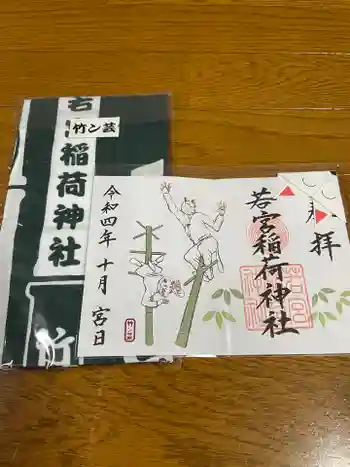 若宮稲荷神社
竹ン芸
奉拝
若宮稲荷神社
令和四年 十月 宮日
竹ン芸